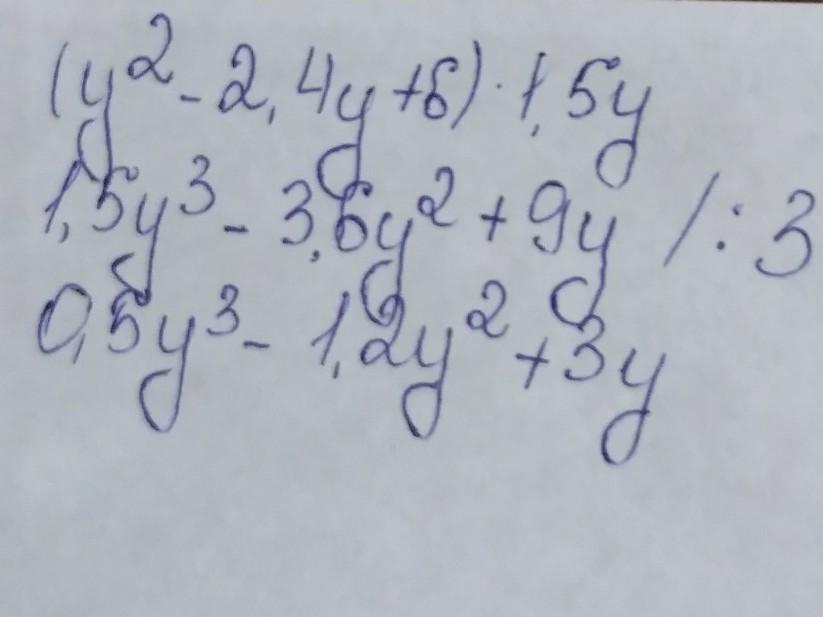 (y² - 2,4y + 6) · 1,5y
1,5y³ - 3,6y² + 9y /: 3
0,5y³ - 1,2y² + 3y